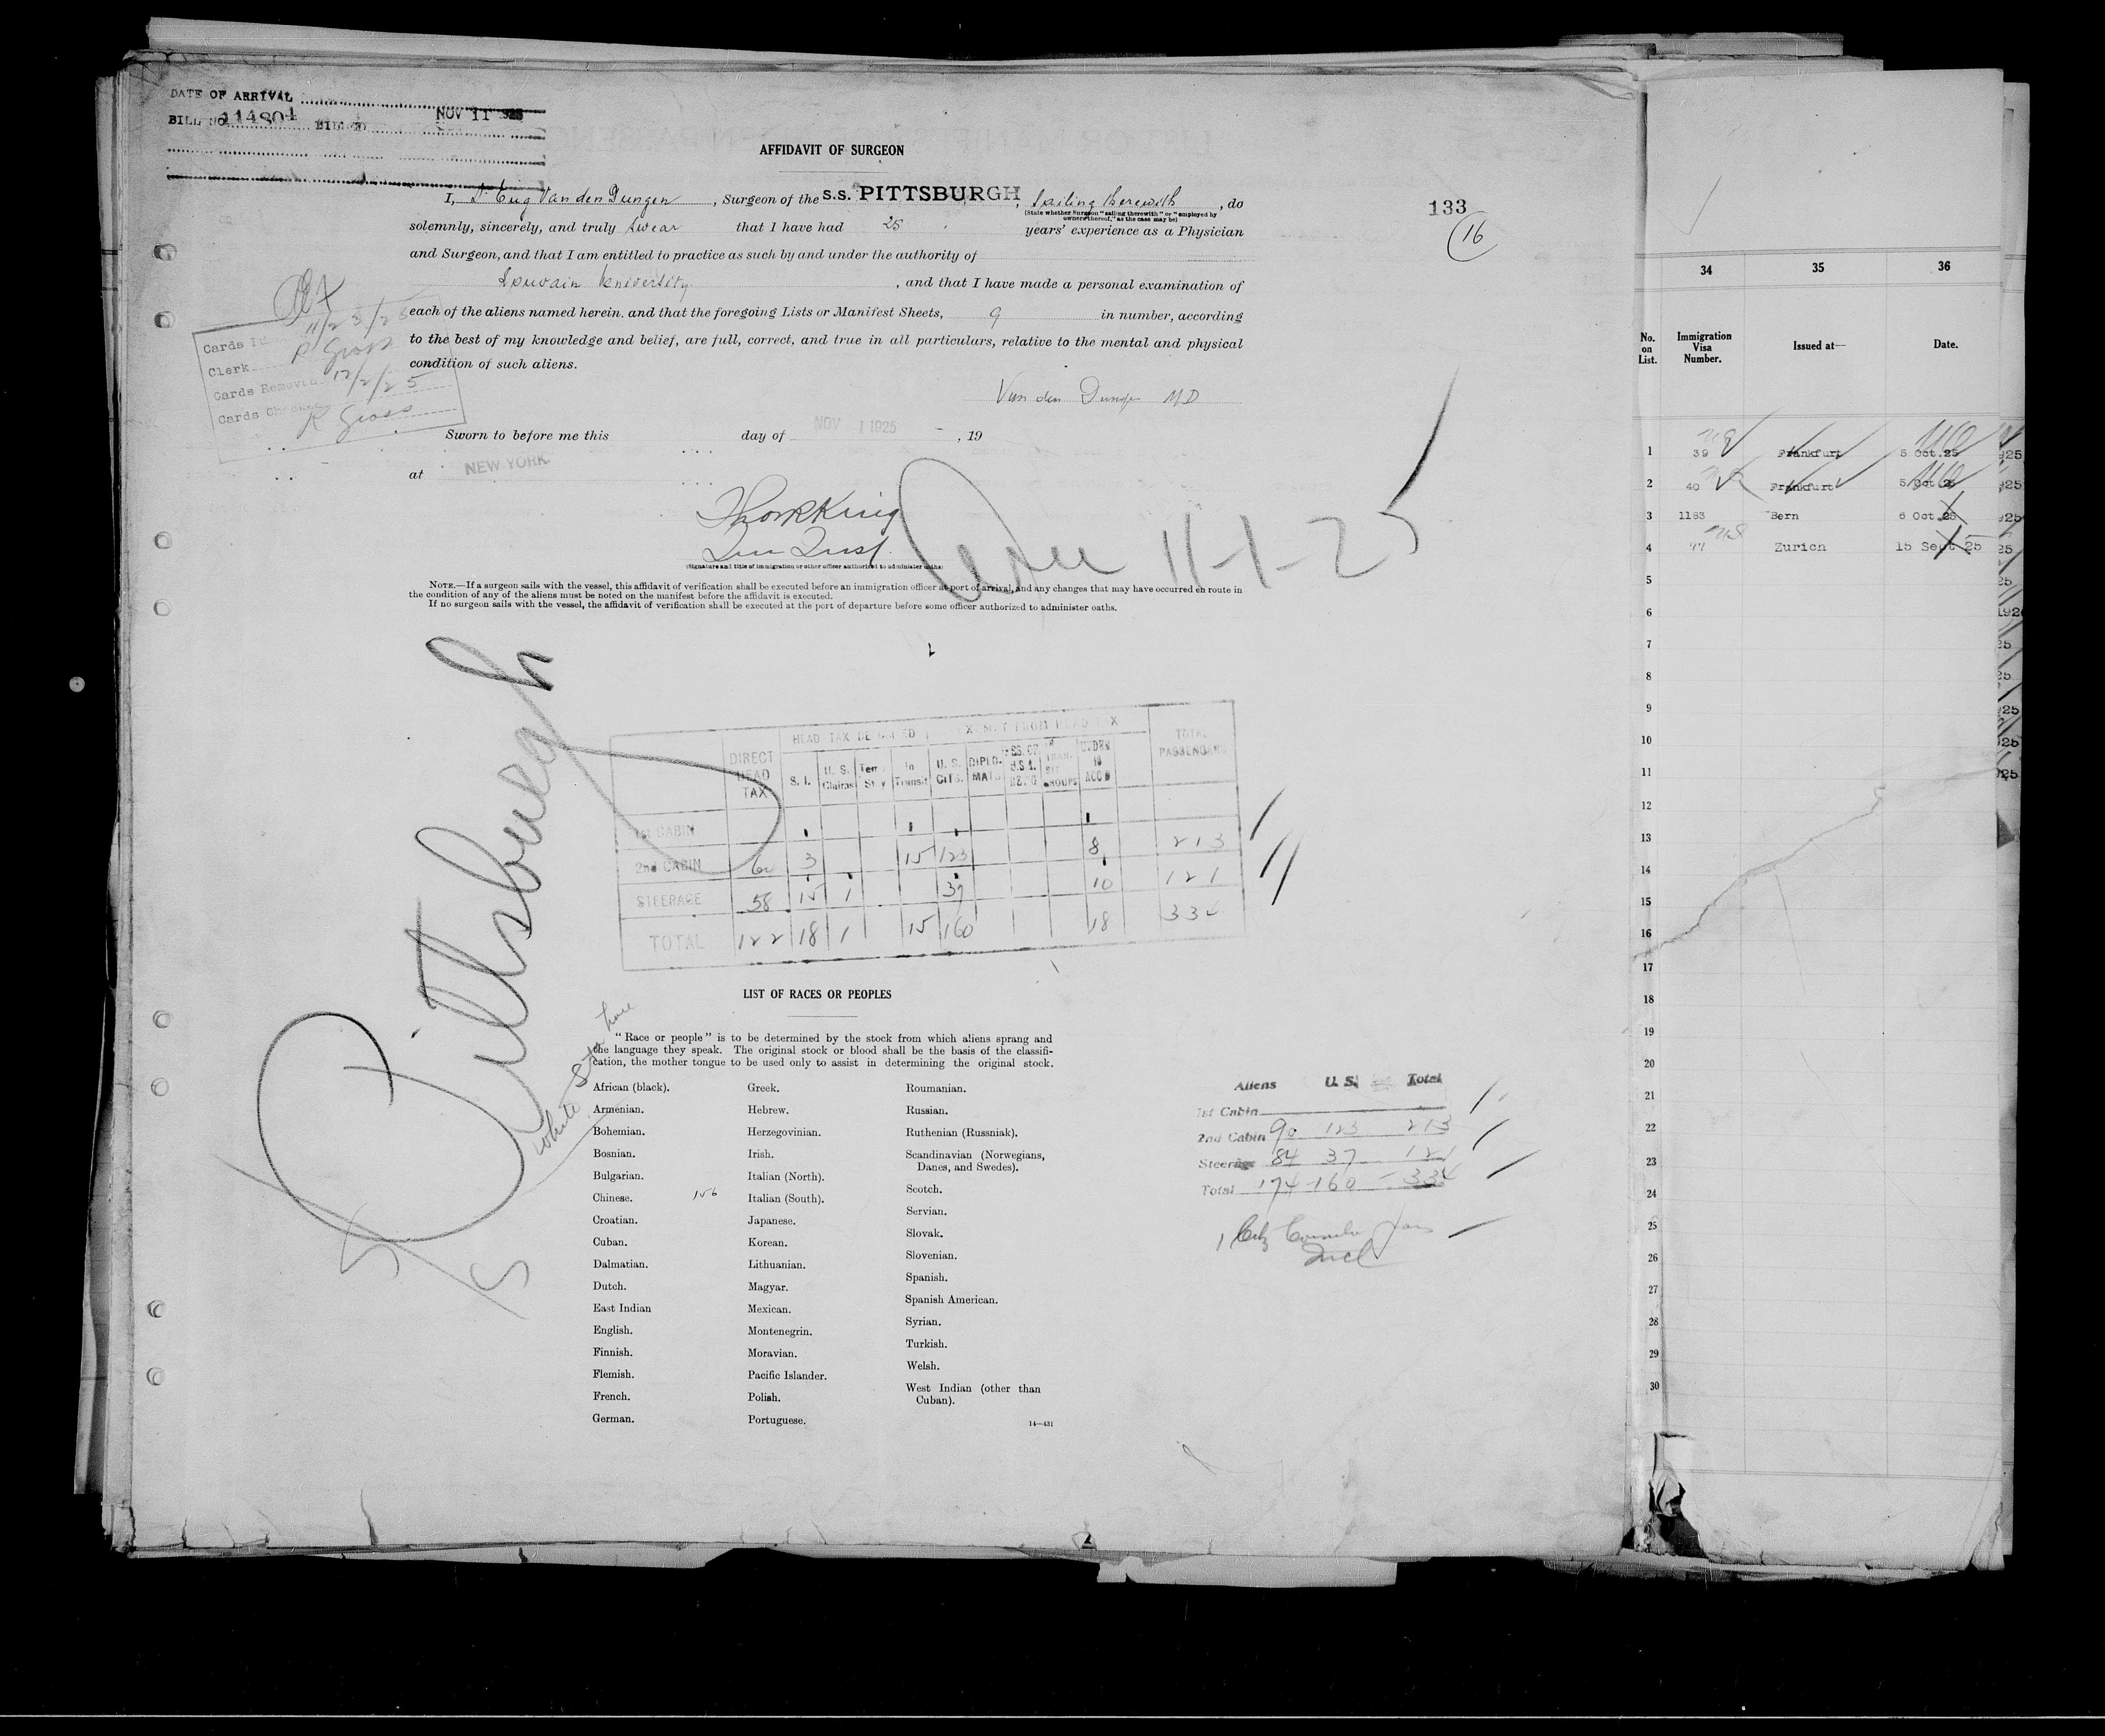 DATE OF ARRIVAL
BILL NO. 114804 BILLED NOV 11 1925
AFFIDAVIT OF SURGEON
I, Dr Eug Van den Dungen, Surgeon of the S.S. PITTSBURGH, Sailing therewith, do
(State whether Surgeon "sailing therewith" or "employed by
owners thereof," as the case may be)
133
16
solemnly, sincerely, and truly swear that I have had 25 years' experience as a Physician
and Surgeon, and that I am entitled to practice as such by and under the authority of
Louvain University, and that I have made a personal examination of
each of the aliens named herein. and that the foregoing Lists or Manifest Sheets, 9 in number, according
to the best of my knowledge and belief, are full, correct, and true in all particulars, relative to the mental and physical
condition of such aliens.
Cards 11/23/25
Clerk R Gross
Cards Removed 12/2/25
Cards R Gross
Van den Dungen MD
Sworn to before me this day of NOV 1 1925, 19
at NEW YORK
Thos R King
(Signature and title of immigration or other officer authorized to administer oaths)
11-1-25
NOTE.—If a surgeon sails with the vessel, this affidavit of verification shall be executed before an immigration officer at port of arrival, and any changes that may have occurred en route in
the condition of any of the aliens must be noted on the manifest before the affidavit is executed.
If no surgeon sails with the vessel, the affidavit of verification shall be executed at the port of departure before some officer authorized to administer oaths.
Pittsburgh
White Star Line
DIRECT HEAD TAX S. I. U. S. Temp Stay In Transit U. S. CITS. DIPLOMATS UNDER 16 ACC'D TOTAL PASSENGERS
1st CABIN
2nd CABIN 3 15 123 8 213
STEERAGE 58 15 1 37 10 121
TOTAL 122 18 1 15 160 18 334
LIST OF RACES OR PEOPLES
"Race or people" is to be determined by the stock from which aliens sprang and
the language they speak. The original stock or blood shall be the basis of the classifi-
cation, the mother tongue to be used only to assist in determining the original stock.
African (black).
Armenian.
Bohemian.
Bosnian.
Bulgarian.
Chinese. 156
Croatian.
Cuban.
Dalmatian.
Dutch.
East Indian
English.
Finnish.
Flemish.
French.
German.
Greek.
Hebrew.
Herzegovinian.
Irish.
Italian (North).
Italian (South).
Japanese.
Korean.
Lithuanian.
Magyar.
Mexican.
Montenegrin.
Moravian.
Pacific Islander.
Polish.
Portuguese.
Roumanian.
Russian.
Ruthenian (Russniak).
Scandinavian (Norwegians,
Danes, and Swedes).
Scotch.
Servian.
Slovak.
Slovenian.
Spanish.
Spanish American.
Syrian.
Turkish.
Welsh.
West Indian (other than
Cuban).
14—431
Aliens U. S. Total
1st Cabin
2nd Cabin 90 123 213
Steerage 84 37 121
Total 174-160-334
34 35 36
No. on List. Immigration Visa Number. Issued at— Date.
1 39 Frankfurt 5 Oct.25
2 40 Frankfurt 5 Oct 25
3 1183 Bern 6 Oct.25
4 Zurich 15 Sept 25
5
6
7
8
9
10
11
12
13
14
15
16
17
18
19
20
21
22
23
24
25
26
27
28
29
30